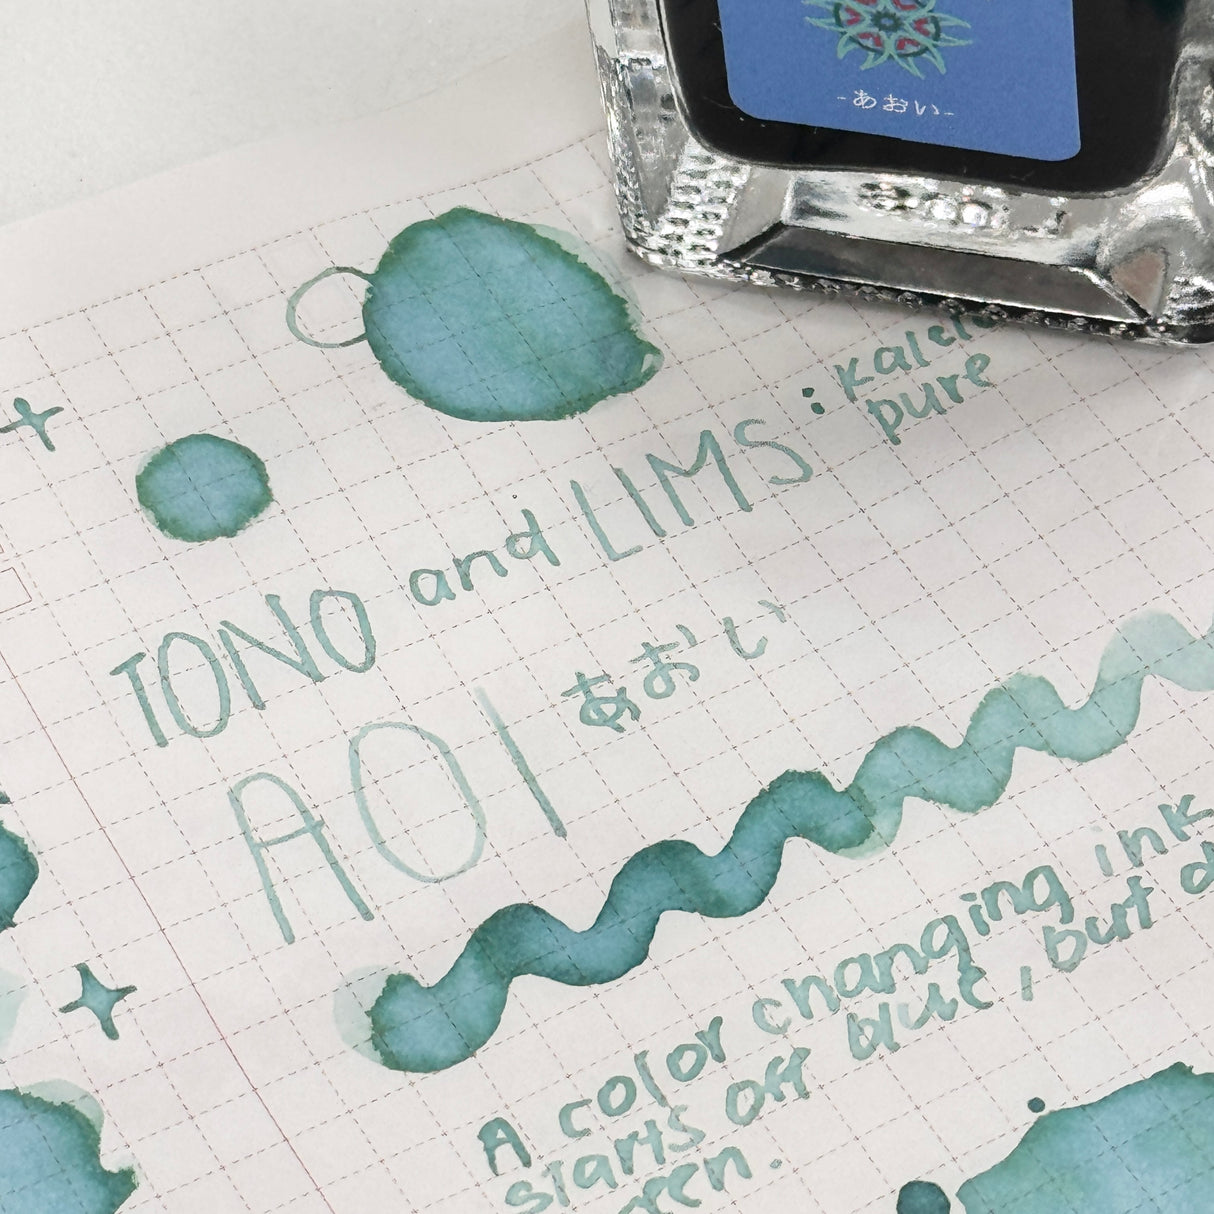 -あおい-
TONO and LIMS : kalei
pure
AOI あおい
A color changing ink
starts off blue, but d
reen.